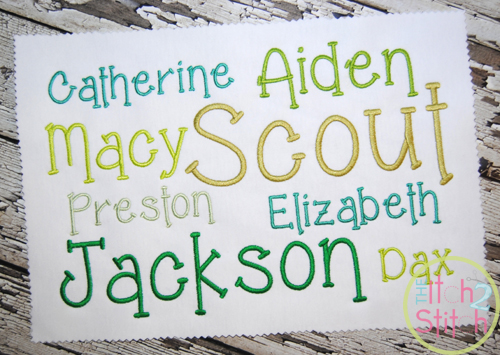 Catherine Aiden
Macy Scout
Preston Elizabeth
Jackson Dax
THE Itch 2
Stitch